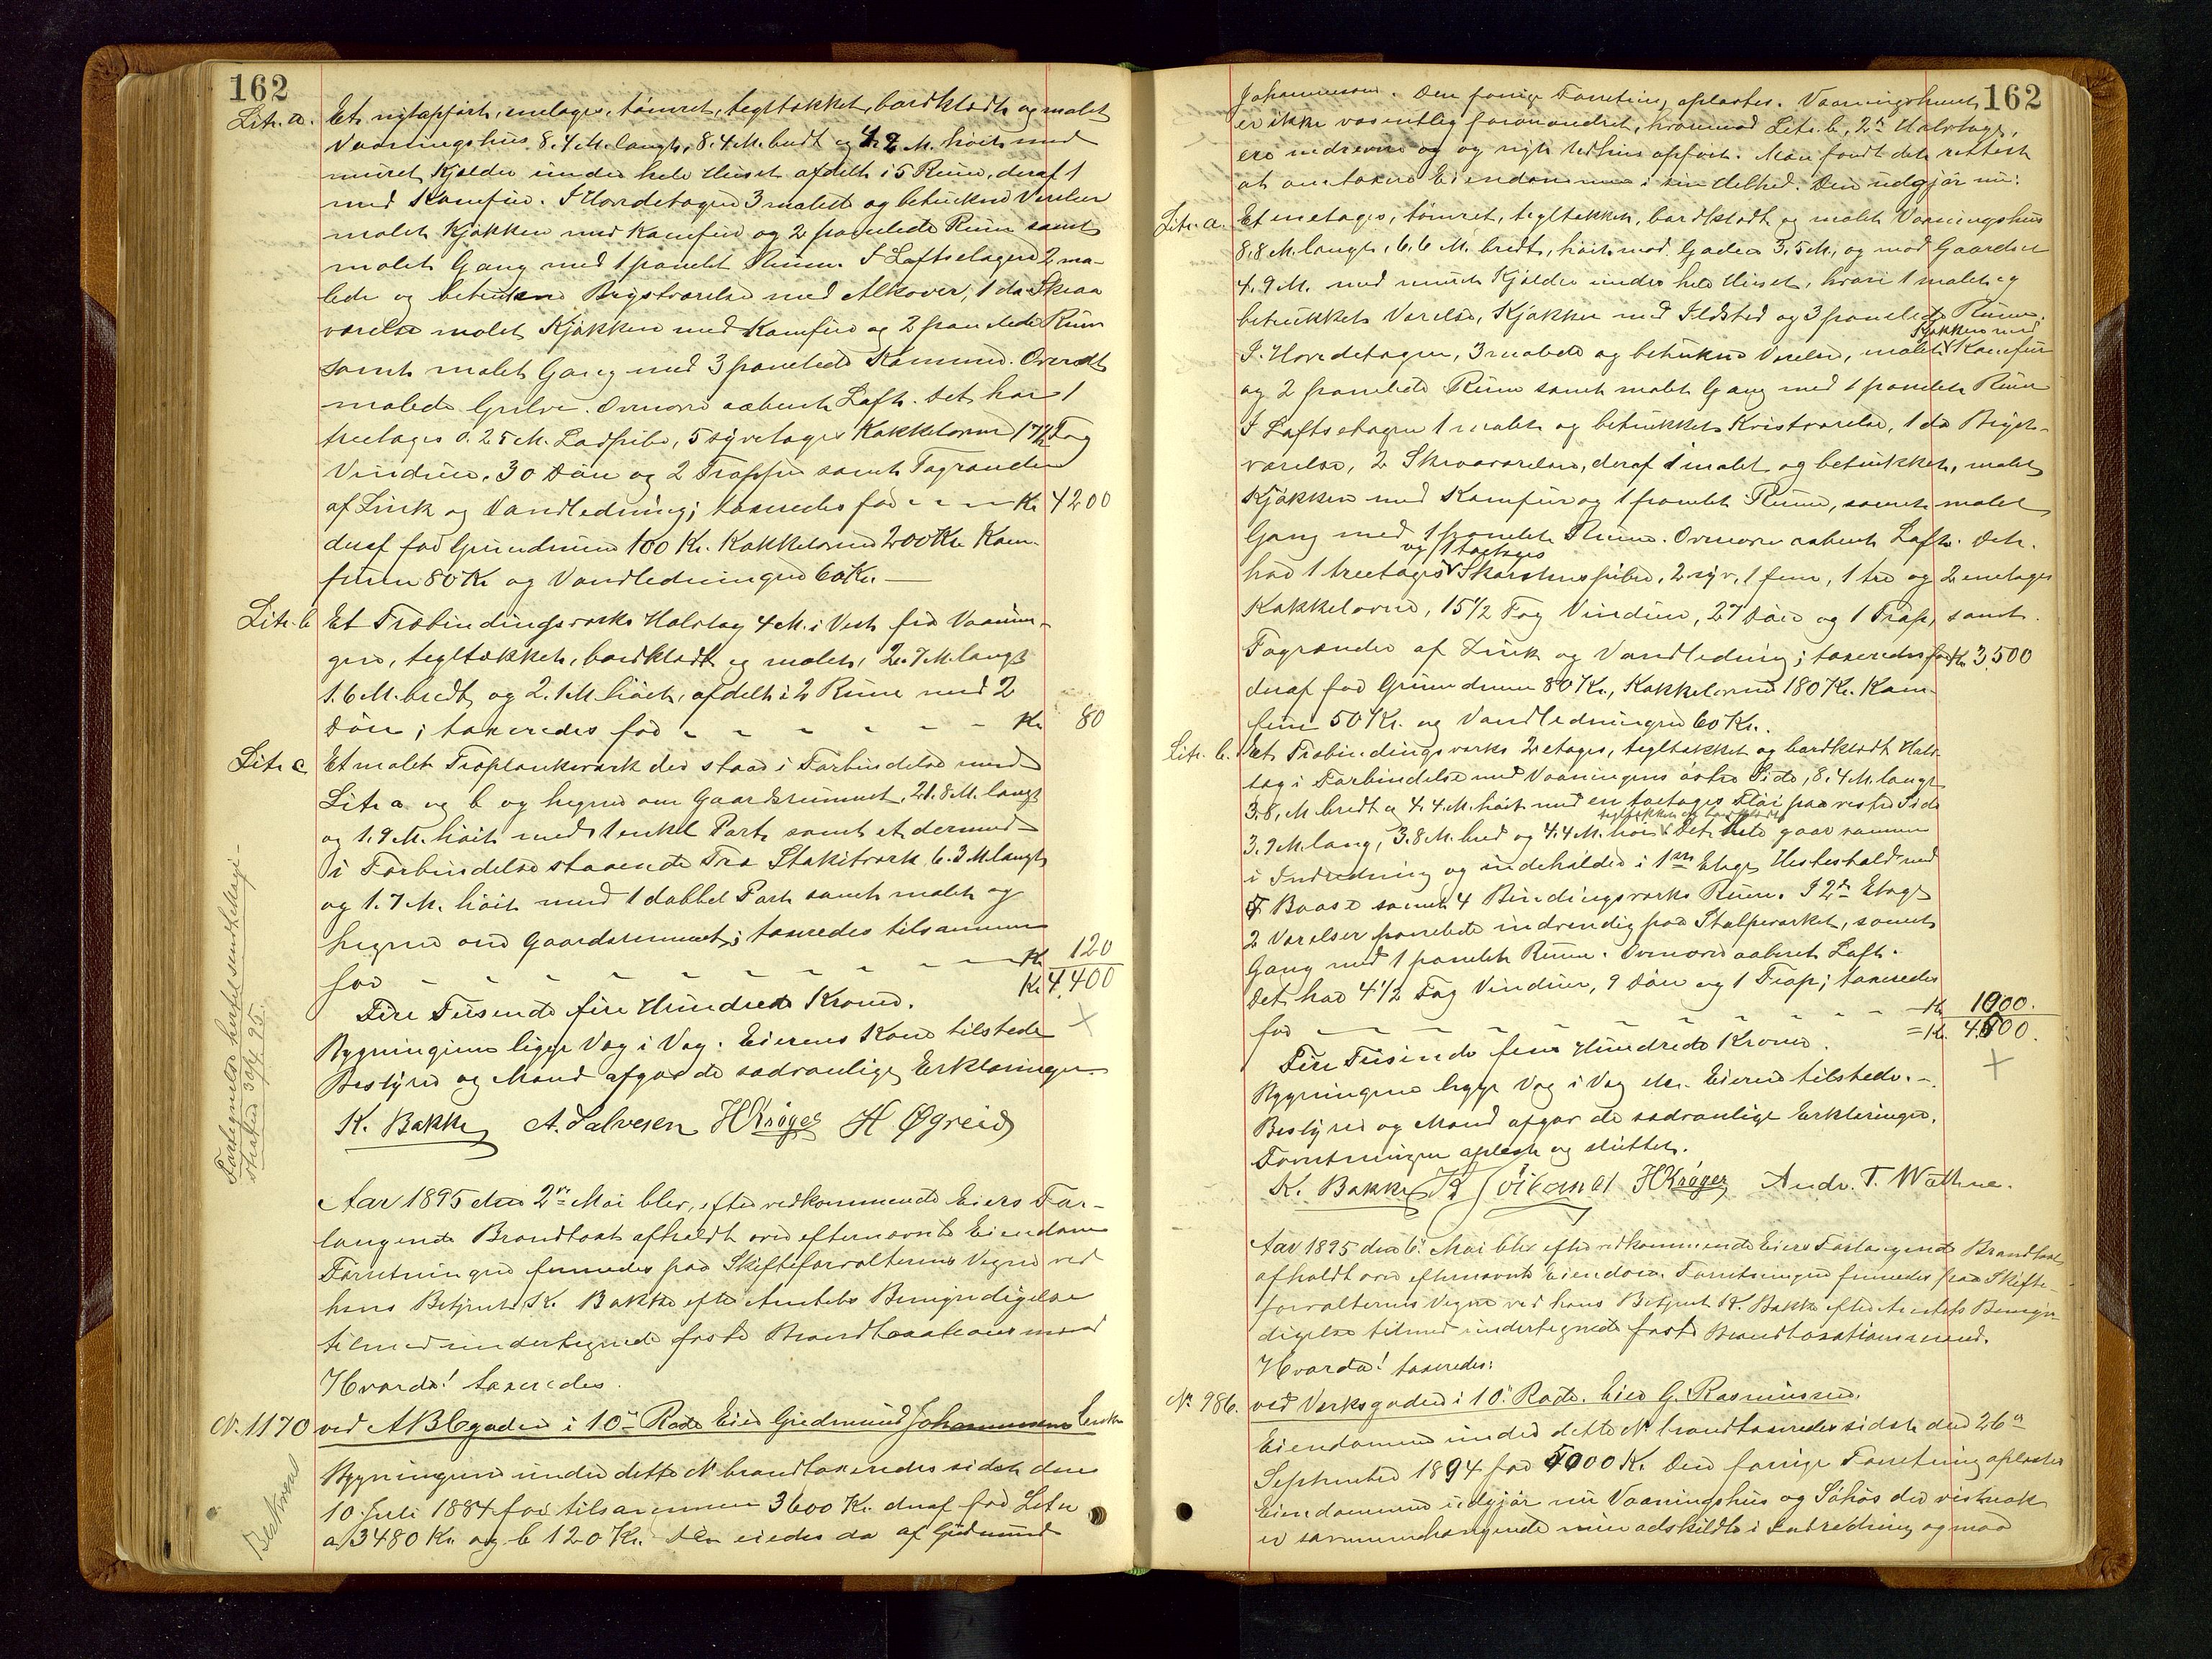 162
Litr. a. Et nytopført, enetages, tømret, tegltækket, bordklædt og malet
Vaaningshus 8.4 M. langt, 8.4 M. bredt og 4.2 M. høit med
muret Kjælder under hele Huset afdelt i 5 Rum, deraf 1
med Komfur. I Hovedetagen 3 malede og betrukne Værelser
malet Kjøkken med Komfur og 2 panelede Rum samt
malet Gang med 1 panelet Rum. I Loftsetagen 2 ma-
lede og betrukne Brystværelser med Alkover, 1 do Skraa
værelse malet Kjøkken med Komfur og 2 panelede Rum
samt malet Gang med 3 panelede Kammere. Overalt
malede Gulve. Ovenover aabent Loft. Det har 1
treetages 0.25 M. Ladpibe, 5 syvetages Kakkelovne 17½ Fag
Vinduer, 30 Døre og 2 Trapper samt Tagrender
af Zink og Vandledning; taxeredes for - - - Kr. 4200
deraf for Grundmuren 100 Kr. Kakkelovne 200 Kr. Kom-
furene 80 Kr. og Vandledningen 60 Kr. —
Litr. b Et Træbindingsværks Halvtag 4 M. i Vest fra Vaanin-
gen, tegltækket, bordklædt og malet, 2.7 M. langt
1.6 M. bredt og 2.1 M. høit, afdelt i 2 Rum med 2
Døre; taxeredes for - - - - - - Kr. 80
Litr. c Et malet Træplankeværk der staar i Forbindelse med
Litr. a og b og hegner om Gaardsrummet, 21.8 M. langt
og 1.9 M. høit med 1 enkel Port samt et dermed
i Forbindelse staaende Træ Stakitværk 6.3 M. langt
og 1.7 M. høit med 1 dobbel Port samt malet og
hegner om Gaardsrummet; taxeredes tilsammen
for - - - - - - - - - - Kr. 120
Kr. 4,400
Fire Tusende fire Hundrede Kroner.
Bygningerne ligge Væg i Væg. Eierens Kone tilstede
Bestyrer og Mænd afgav de sædvanlige Erklæringer
K. Bakke A. Salvesen H Krøger H. Øgreid
Aar 1895 den 2den Mai blev, efter vedkommende Eiers For-
langende Brandtaxt afholdt over efternævnte Eiendom
Forretningen fremmedes paa Skifteforvalterens Vegne ved
hans Betjent K. Bakke efter Amtets Bemyndigelse
tilmed undertegnede faste Brandtaxationsmænd
Hvorda! taxeredes.
Nr. 1170 ved ABCgaden i 10de Rode Eier Gudmund Johannesens Enke
Bygningerne under dette Nr. brandtaxeredes sidst den
10 Juli 1884 for tilsammen 3600 Kr. deraf for Litr.
a 3480 Kr. og b 120 Kr. Den eiedes da af Gudmund
Fortegnelse herfor sendt Magi-
straten 30/4 95.
162
Johannesen. Den forrige Forretning oplæstes. Vaaningshuset
er ikke væsentlig forandret, hvorimod Litr. b, 2de Halvtage,
ere nedrevne og og nyt Udhus opført. Man fandt det rettest
at omtaxere Eiendommen i sin Helhed. Den udgjør nu:
Litr. a. Et enetages, tømret, tegltækket, bordklædt og malet Vaaningshus
8.8 M. langt, 6.6 M. bredt, høit mod Gaden 3.5 M. og mod Gaarden
4.9 M. med muret Kjælder under hele Huset, hvori 1 malet og
betrukket Værelse, Kjøkken med Ildsted og 3 panelede Rum.
I Hovedetagen, 3 malede og betrukne Værelser, malet Kjøkken med Komfur
og 2 panelede Rum samt malet Gang med 1 panelet Rum
I Loftsetagen 1 malet og betrukket Kvistværelse, 1 do Bryst-
værelse, 2 Skraaværelser, deraf 1 malet og betrukket, malet
Kjøkken med Komfur og 1 panelet Rum, samt malet
Gang med 1 panelet Rum. Ovenover aabent Loft. Det
har 1 treetages og 1 toetages Skorstenspibe, 2 syv, 1 fem, 1 tre og 2 enetages
Kakkelovne, 15½ Fag Vinduer, 27 Døre og 1 Trap, samt
Tagrender af Zink og Vandledning; taxeredes for Kr. 3,500
deraf for Grundmuren 80 Kr., Kakkelovne 180 Kr. Kom-
furene 50 Kr. og Vandledningen 60 Kr.
Litr. b. Et Træbindingsværks 2 etages, tegltækket og bordklædt Halv-
tag i Forbindelse med Vaaningens østre Side, 8.4 M. langt
3.8, M. bredt og 4.4 M. høit med en toetages Fløi paa vestre Side
3.9 M. lang, 3.8 M. bred og 4.4 M. høi tegltækket og bordklædt. Det hele gaar sammen
i Indredning og indeholder i 1ste Etage Hestestald med
Baase samt 4 Bindingsværks Rum. I 2den Etage
2 Værelser panelede indvendig paa Stolpeværket, samt
Gang med 1 panelet Rum. Ovenover aabent Loft.
Det har 4½ Fag Vinduer, 9 Døre og 1 Trap; taxeredes
for - - - - - - - - - - Kr. 1000.
= Kr. 4,500.
Fire Tusinde fem Hundrede Kroner.
Bygningerne ligge Væg i Væg etc. Eieren tilstede. -
Bestyrer og Mænd afgav de sædvanlige Erklæringer.
Forretningen oplæst og sluttet.
K. Bakke H Krøger Andr. T. Wathne.
Aar 1895 den 6. Mai blev efter vedkommende Eiers Forlangende Brandtaxt
afholdt over efternævnte Eiendom. Forretningen fremmedes paa Skifte-
forvalterens Vegne ved hans Betjent K. Bakke efter Amtets Bemyn-
digelse tilmed undertegnede faste Brandtaxationsmænd.
Hvorda! taxeredes:
Nr. 986. ved Verksgaden i 10. Rode. Eier G. Rasmussen.
Eiendommen under dette Nr. brandtaxeredes sidst den 26de
September 1894 for Kr. Den forrige Forretning oplæstes
Eiendommen udgjør nu Vaaningshus og Søhus der vistnok
er sammenhængende men adskildt i Indredning og maa